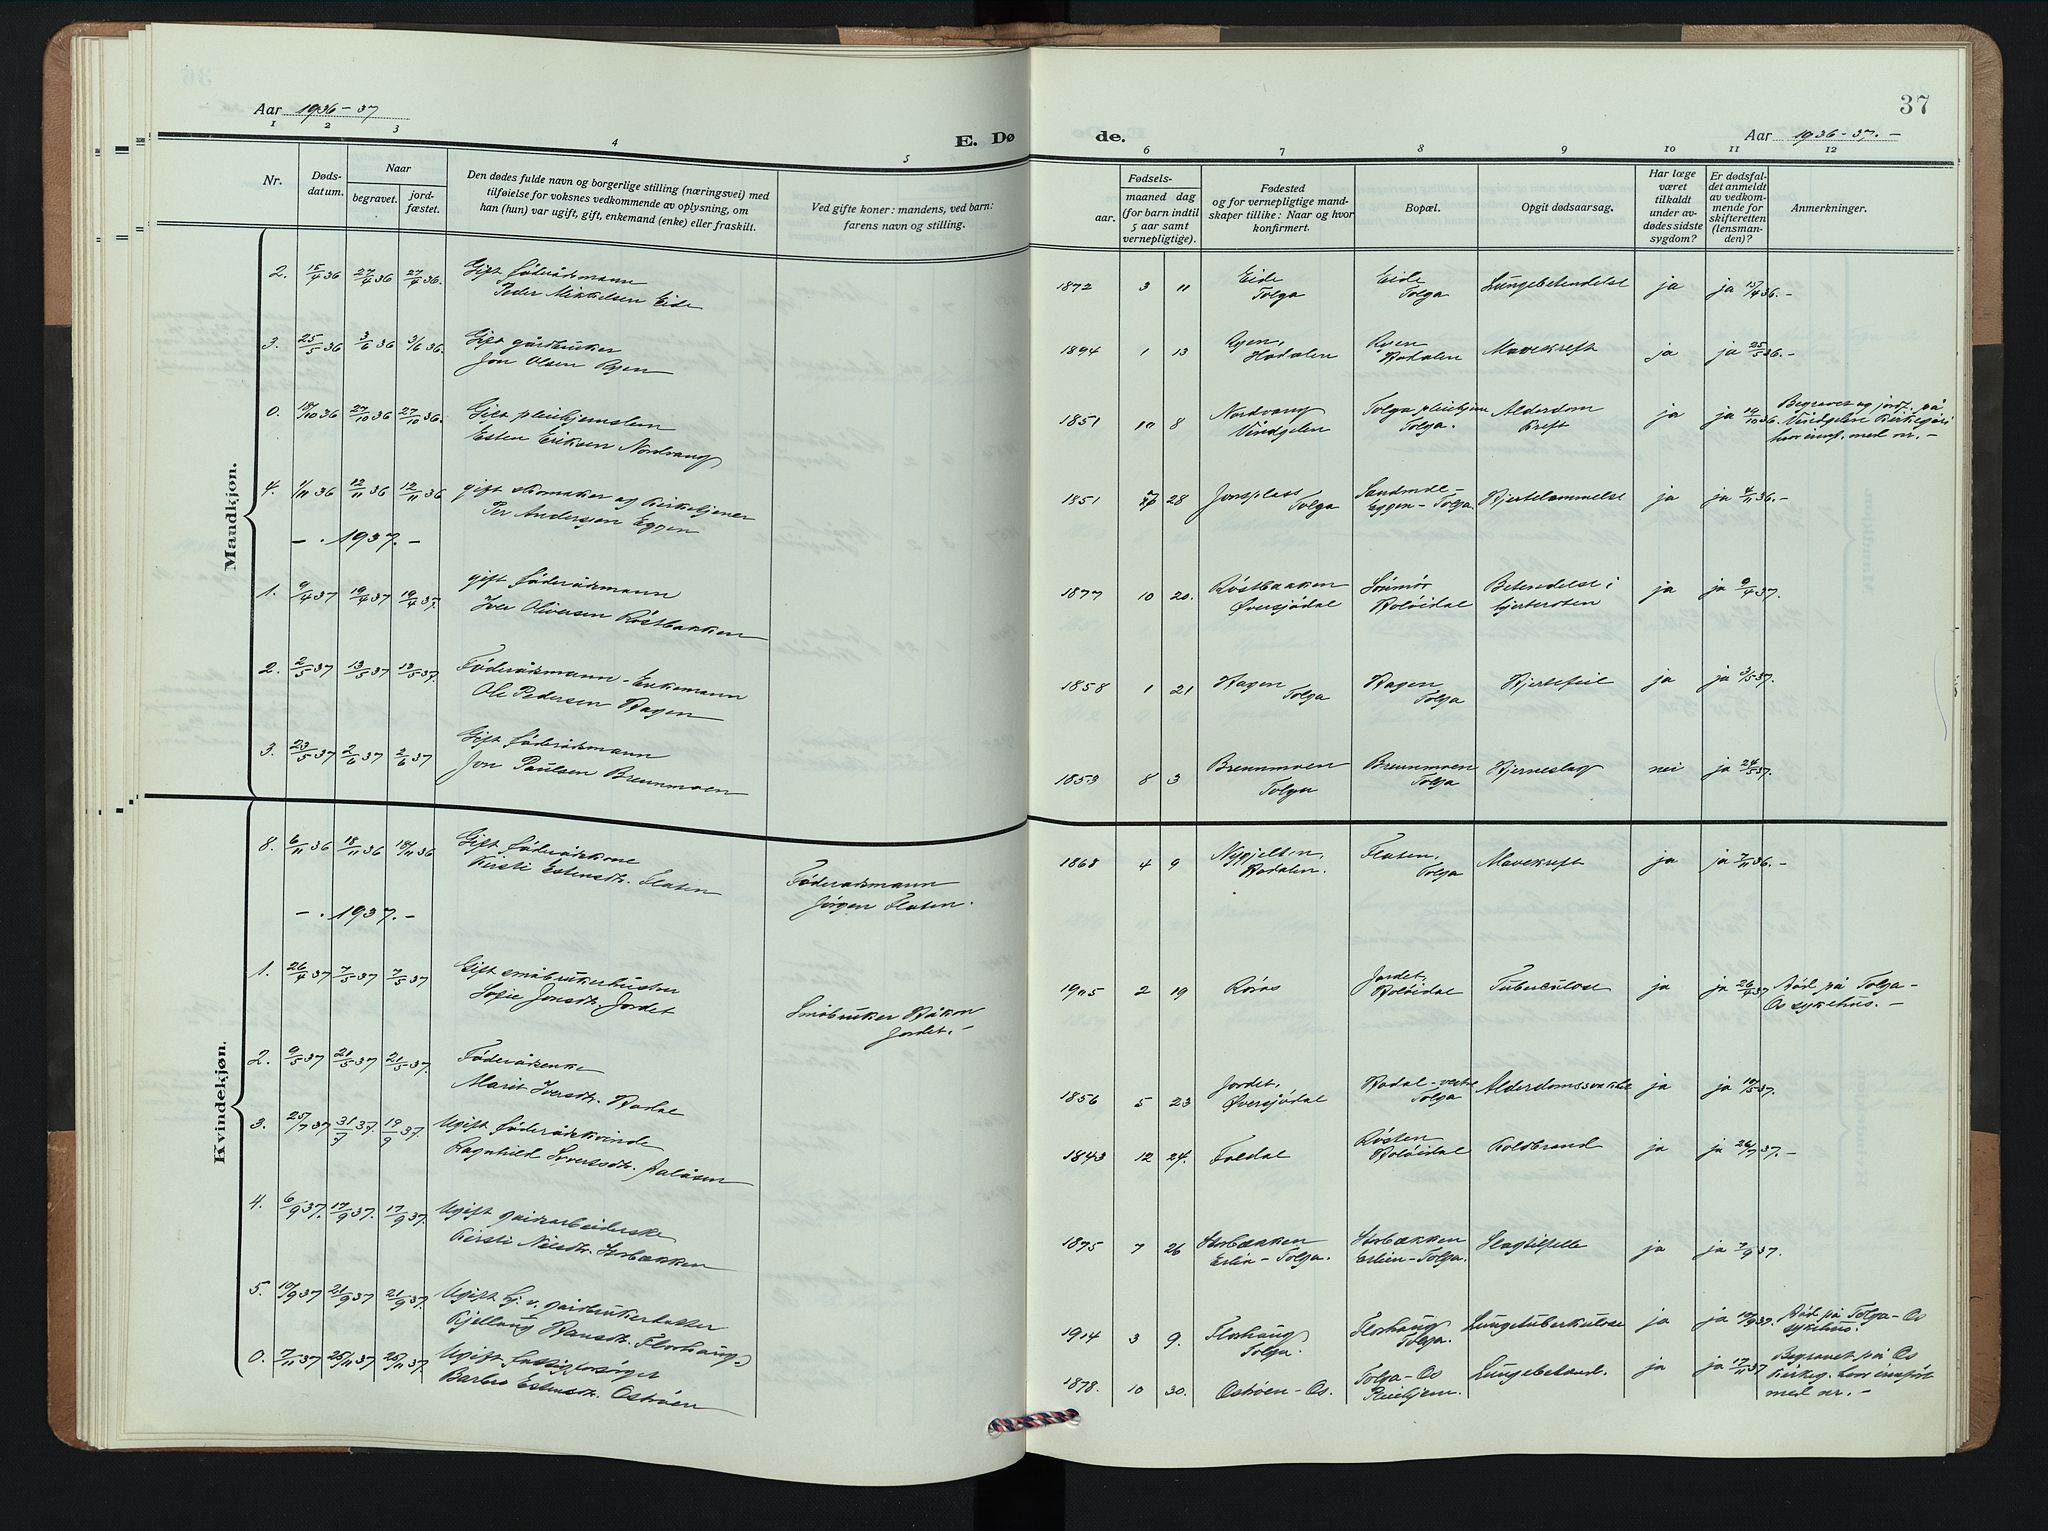 37
Aar 1936-37
E. Dø de.
Aar 1936-37.-
1 2 3 4 5 6 7 8 9 10 11 12
Nr.
Døds-
datum.
Naar
begravet.
jord-
fæstet.
Den dødes fulde navn og borgerlige stilling (næringsvei) med
tilføielse for voksnes vedkommende av oplysning, om
han (hun) var ugift, gift, enkemand (enke) eller fraskilt.
Ved gifte koner: mandens, ved barn:
farens navn og stilling.
Fødsels-
aar.
maaned dag
(for barn indtil
5 aar samt
vernepligtige).
Fødested
og for vernepligtige mand-
skaper tillike: Naar og hvor
konfirmert.
Bopæl.
Opgit dødsaarsag.
Har læge
været
tilkaldt
under av-
dødes sidste
sygdom?
Er dødsfal-
det anmeldt
av vedkom-
mende for
skifteretten
(lensman-
den)?
Anmerkninger.
Mandkjøn.
2. 15/4 36 27/4 36 27/4 36. Gift føderådsmann 1872 3 11 Eide Eide Lungebetendelse ja ja 15/4 36.-
Peder Mikkelsen Eide Tolga Tolga
3. 25/5 36 3/6 36 3/6 36. Gift gårdbruker 1894 1 13 Ryen, Ryen Mavekreft ja ja 25/5 36.-
Jon Olsen Ryen Hodalen Hodalen
0. 18/10 36 27/10 36 27/10 36. Gift pleiehjemslem 1851 10 8 Nordvang Tolga pleiehjem Alderdom ja ja 19/10 36. Begravet og jordf. på
Esten Eriksen Nordvang Vindgelen Tolga. Kreft Vindgelen Kirkegård
hvor innf. med nr.-
4. 1/11 36 12/11 36 12/11 36 gift skomaker og kirketjener 1851 28 Jonsplass Sandmoe- Hjertelammelse ja ja 4/11 36.-
Per Andersen Eggen Tolga Eggen-Tolga.
-. 1937.-
1. 9/4 37 19/4 37 19/4 37. gift føderådsmann 1877 10 20. Røstbakken Betendelse i ja ja 9/4 37.
Iver Oliversen Røstbakken Øversjødal Holøidal hjerteroten
2. 2/5 37 13/5 37 13/5 37. Føderådsmann-Enkemann 1858 1 21 Hagen Hagen Hjertefeil ja ja 3/5 37.
Ole Pedersen Hagen Tolga Tolga
3. 23/5 37 2/6 37 2/6 37 Gift føderådsmann 1853 8 3 Brennmoen Brennmoen Hjerneslag nei ja 24/5 37.
Jon Paulsen Brennmoen Tolga Tolga
Kvindekjøn.
8. 6/11 36 18/11 36 18/11 36 Gift føderådskone 1868 4 9 Flaten, Mavekreft ja ja 7/11 36.-
Kirsti Estensdtr. Flaten Føderådsmann Hodalen. Tolga
Jørgen Flaten.
-. 1937.-
1. 26/4 37 7/5 37 7/5 37 Gift småbrukerhustru 1905 2 19 Røros Jordet, Tuberculose ja ja 26/4 37 Død på Tolga-
Sofie Jonsdtr. Jordet Småbruker Håkon Holøidal Os sykehus.-
Jordet.-
2. 9/5 37 21/5 37 21/5 37. Føderådsenke 1856 5 23 Jordet, Hodal-vestre Alderdomssvakhet ja ja 10/5 37.
Marit Iversdtr. Hodal Øversjødal Tolga
3. 25/7 37 31/7 37. 19/9 37. Ugift føderådskvinde 1843 12 24. Foldal Røsten Koldbrand ja ja 26/7 37.-
Ragnhild Sivertsdtr. Holøidal
4. 6/9 37. 17/9 37. 17/9 37. Ugift 1875 7 26 Storbækken Storbækken Slagtilfelle ja ja 7/9 37.
Kirsti Nilsdtr. Storbækken Erlien-Tolga. Erlien-Tolga.
5. 10/9 37 21/9 37 21/9 37. Ugift hj.v. gårdbrukerdatter 1914 3 9. Florhaug Florhaug Lungetuberkulose ja ja 10/9 37. Død på Tolga-Os
Kjellaug Hansdtr. Florhaug. Tolga. Tolga. sykehus.
0. 7/11 37 25/11 37 25/11 37. Ugift fattigforsørget 1878. 10 30. Ostrøen-Os. Tolga-Os Lungebetend. ja ja 17/11 37 Begravet på Os
Barbro Estensdtr. Ostrøen Pleiehjem. Kirkeg. hvor innført
med nr.-